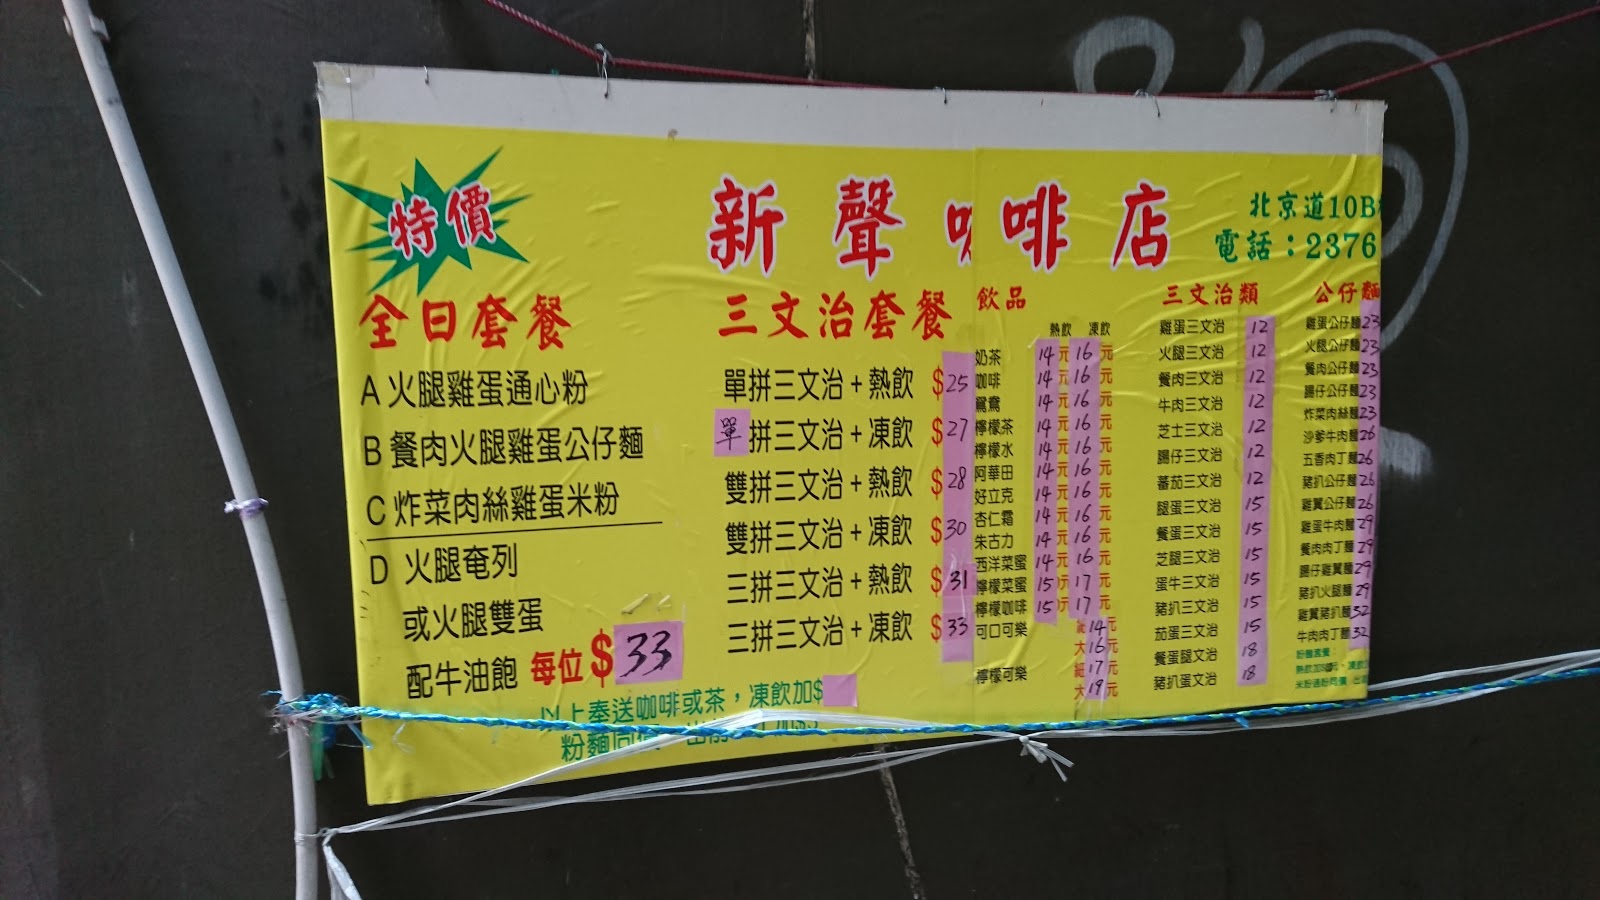 特價
新聲咖啡店
北京道10B
電話：2376
全日套餐
A 火腿雞蛋通心粉
B 餐肉火腿雞蛋公仔麵
C 炸菜肉絲雞蛋米粉
D 火腿奄列
或火腿雙蛋
配牛油飽 每位$33
以上奉送咖啡或茶，凍飲加$
粉麵同
三文治套餐
單拼三文治+熱飲 $25
單拼三文治+凍飲 $27
雙拼三文治+熱飲 $28
雙拼三文治+凍飲 $30
三拼三文治+熱飲 $31
三拼三文治+凍飲 $33
飲品
熱飲 凍飲
奶茶 14元 16元
咖啡 14元 16元
鴛鴦 14元 16元
檸檬茶 14元 16元
檸檬水 14元 16元
阿華田 14元 16元
好立克 14元 16元
杏仁霜 14元 16元
朱古力 14元 16元
西洋菜蜜 14元 16元
檸檬菜蜜 15元 17元
檸檬咖啡 15元 17元
可口可樂 14元
大16元
檸檬可樂 細17元
大19元
三文治類
雞蛋三文治 12
火腿三文治 12
餐肉三文治 12
牛肉三文治 12
芝士三文治 12
腸仔三文治 12
蕃茄三文治 12
腿蛋三文治 15
餐蛋三文治 15
芝腿三文治 15
蛋牛三文治 15
豬扒三文治 15
茄蛋三文治 15
餐蛋腿文治 18
豬扒蛋文治 18
公仔麵
雞蛋公仔麵 23
火腿公仔麵 23
餐肉公仔麵 23
腸仔公仔麵 23
炸菜肉絲麵 23
沙爹牛肉麵 26
五香肉丁麵 26
豬扒公仔麵 26
雞翼公仔麵 26
雞蛋牛肉麵 29
餐肉肉丁麵 29
腸仔雞翼麵 29
豬扒火腿麵 29
雞翼豬扒麵 32
牛肉肉丁麵 32